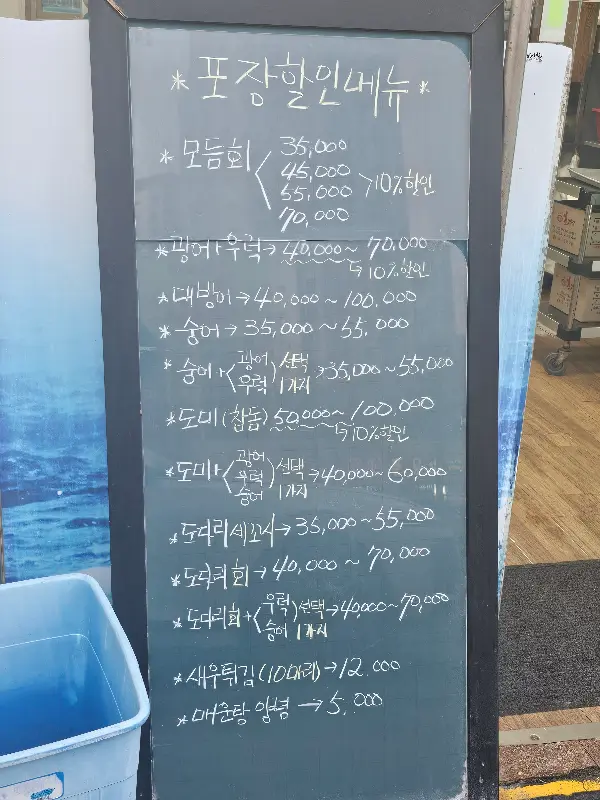 * 포장할인메뉴 *
* 모듬회 < 35,000
45,000
55,000
70,000
> 10% 할인
* 광어+우럭→ 40,000~ 70,000
↳ 10% 할인
* 대방어→40,000~100,000
* 숭어→35,000~55,000
* 숭어+<광어 우럭) 선택 1가지 →35,000~55,000
* 도미(참돔) 50,000~100,000
↳ 10% 할인
* 도미+<광어 우럭 숭어) 선택 1가지 →40,000~60,000
* 도다리세꼬시→35,000~55,000
* 도다리회→40,000~70,000
* 도다리회+<우럭 숭어) 선택 1가지 →40,000~70,000
* 새우튀김(10마리)→12.000
* 매운탕 양념→5.000